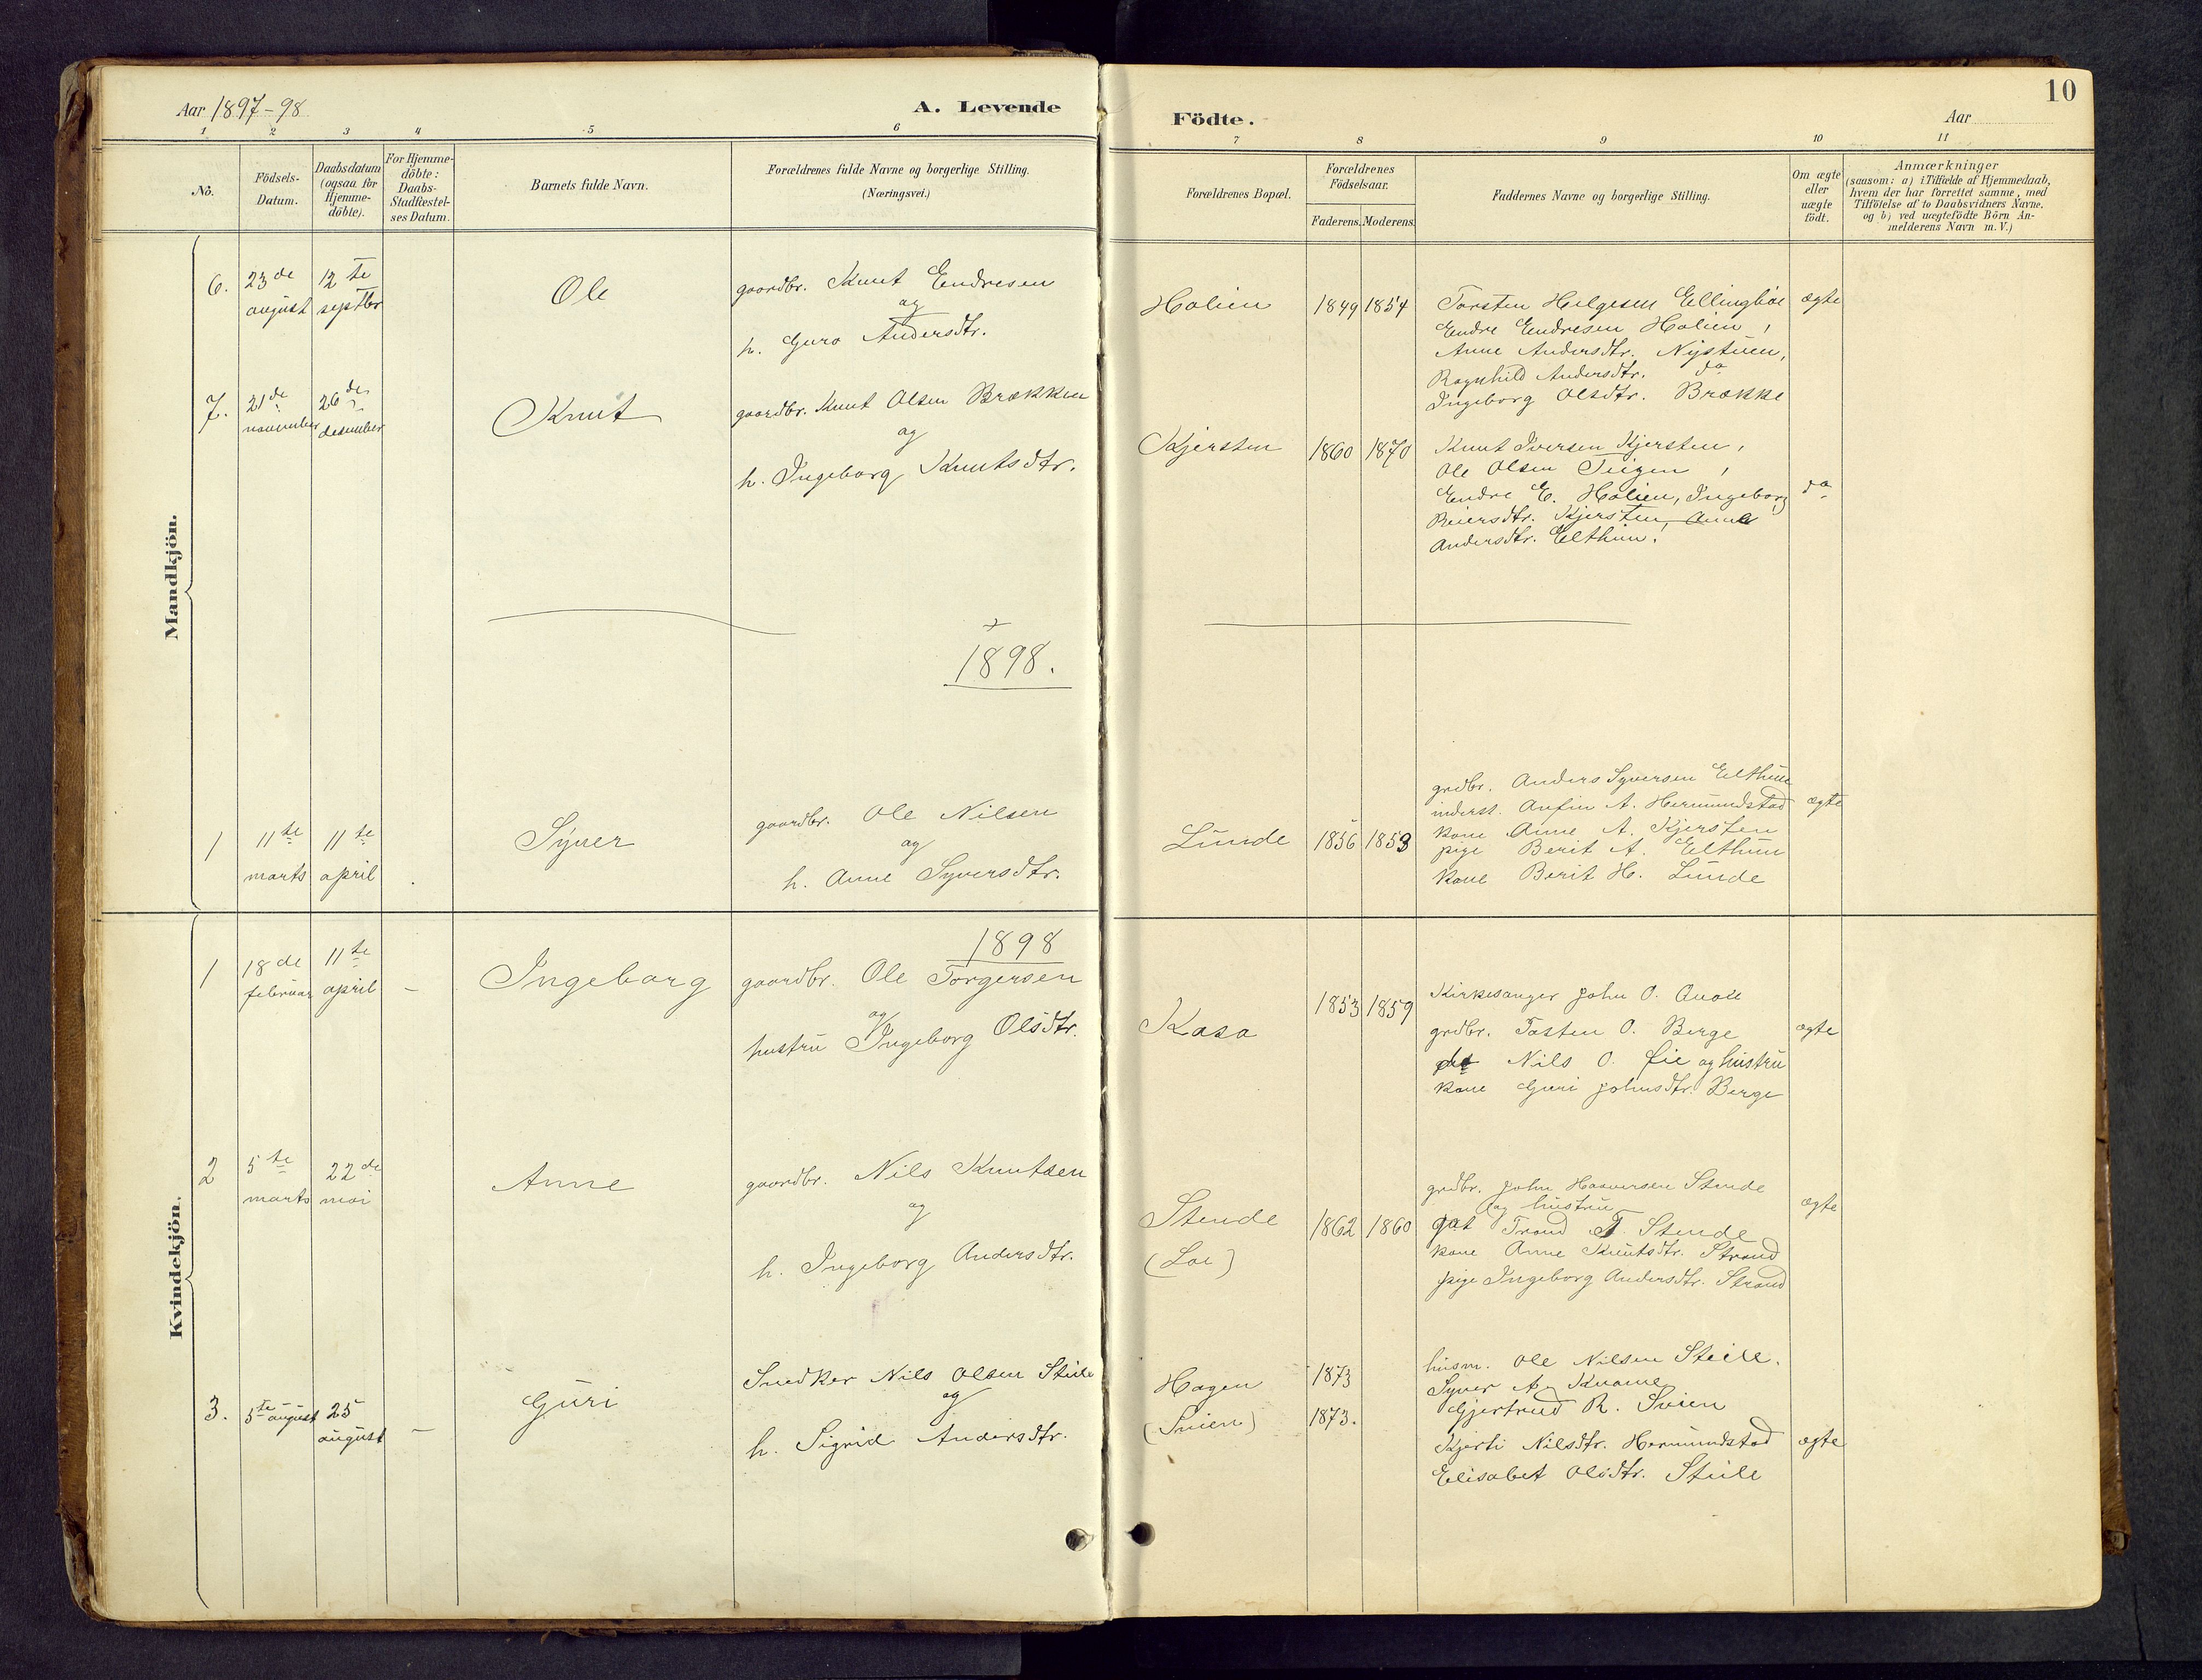 Aar 1897-98
A. Levende
Födte.
Aar
10
1 2 3 4 5 6 7 8 9 10 11
No.
Födsels-
Datum.
Daabsdatum
(ogsaa for
Hjemme-
döbte).
For Hjemme-
döbte:
Daabs-
Stadfæstel-
ses Datum.
Barnets fulde Navn.
Forældrenes fulde Navne og borgerlige Stilling.
(Næringsvei.)
Forældrenes Bopæl.
Forældrenes
Födselsaar.
Faderens. Moderens.
Faddernes Navne og borgerlige Stilling.
Om ægte
eller
uægte
födt.
Anmærkninger
(saasom: a) i Tilfælde af Hjemmedaab,
hvem der har forrettet samme, med
Tilföielse af to Daabsvidners Navne.
og b) ved uægtefödte Börn An-
melderens Navn m. V.)
Mandkjön.
6.
23de
august
12te
septbr
Ole
gaardbr. Knut Endresen
og
h. Guro Andersdtr.
Holien
1849 1854
Torsten Helgesen Ellingböe
Endre Endresen Holien,
Anne Andersdtr. Nystuen,
Ragnhild Andersdtr. do
Ingeborg Olsdtr. Brække
ægte
7.
21de
november
26de
desember
Knut
gaardbr. Knut Olsen Brækken
og
h. Ingeborg Knutsdtr.
Kjersten
1860 1870
Knut Iversen Kjersten,
Ole Olsen Teigen,
Endre E. Holien, Ingeborg
Reiersdtr. Kjersten, Anne
Andersdtr. Elthun.
do
1898.
1
11te
marts
11te
april
Syver
gaardbr. Ole Nilsen
og
h. Anne Syversdtr.
Lunde
1856 1853
grdbr. Anders Syversen Elthun
inderst. Anfin A. Hermundstad
kone Anne A. Kjersten
pige Berit A. Elthun
kone Berit H. Lunde
ægte
Kvindekjön.
1898
1
18de
februar
11te
april
-
Ingeborg
gaardbr. Ole Torgersen
og
hustru Ingeborg Olsdtr.
Kasa
1853 1859
Kirkesanger John O. Quale
grdbr. Tosten O. Berge
do Nils O. Øie og hustru
kone Guri Johnsdtr. Berge
ægte
2
5te
marts
22de
mai
Anne
gaardbr. Nils Knutsen
og
h. Ingeborg Andersdtr.
Stende
(Loe)
1862 1860
grdbr. John Haaversen Stende
og hustru
gat Trond T. Stende
kone Anne Knutsdtr. Strand
pige Ingeborg Andersdtr. Strand
ægte
3.
5te august
25
august
-
Guri
Snedker Nils Olsen Steile
og
h. Sigrid Andersdtr.
Hagen
(Svien)
1873
1873.
husm. Ole Nilsen Steile.
Syver A. Kvame
Gjertrud R. Svien
Kjersti Nilsdtr. Hermundstad
Elisabet Olsdtr. Steile
ægte